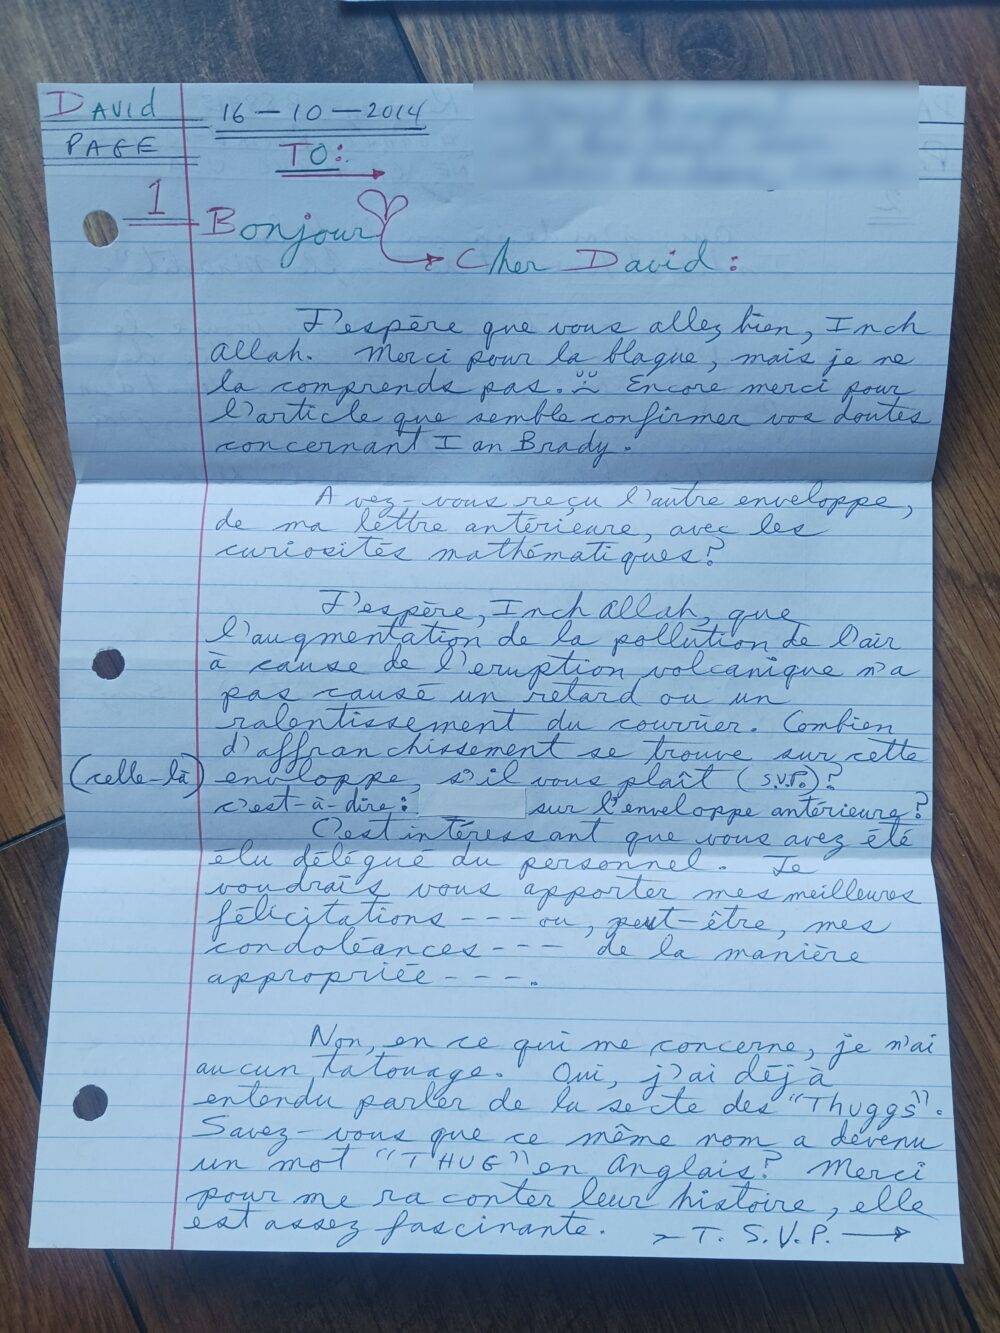 David
PAGE
1
16-10-2014
TO:
Bonjour
Cher David:
J'espère que vous allez bien, Inch
Allah. Merci pour la blague, mais je ne
la comprends pas. Encore merci pour
l'article que semble confirmer vos doutes
concernant Ian Brady.
Avez-vous reçu l'autre enveloppe,
de ma lettre antérieure, avec les
curiosités mathématiques?
J'espère, Inch Allah, que
l'augmentation de la pollution de l'air
à cause de l'eruption volcanique n'a
pas causé un retard ou un
ralentissement du courrier. Combien
d'affranchissement se trouve sur cette
(celle-là) enveloppe, s'il vous plaît (S.V.P.)?
c'est-à-dire: sur l'enveloppe antérieure?
C'est intéressant que vous avez été
élu délégué du personnel. Je
voudrais vous apporter mes meilleures
félicitations --- ou, peut-être, mes
condoléances --- de la manière
appropriée ---.
Non, en ce qui me concerne, je n'ai
aucun tatouage. Oui, j'ai déjà
entendu parler de la secte des "Thuggs".
Savez-vous que ce même nom a devenu
un mot "THUG" en Anglais? Merci
pour me raconter leur histoire, elle
est assez fascinante. > T. S.V.P. →